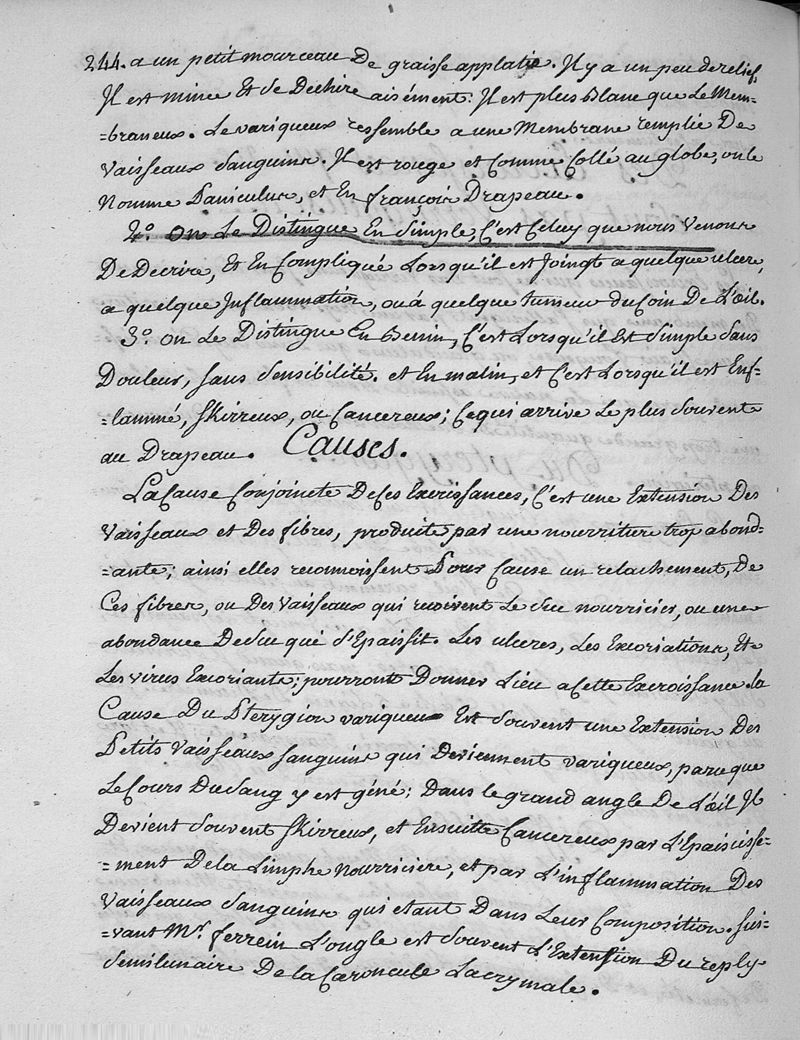 244. a un petit mourceau De graisse applatie. Il y a un peu de relief,
Il est mince Et se Dechire aisément. Il est plus Blanc que Le Mem=
=braneux. Le variqueux ressemble a une Membrane remplie De
Vaisseaux Sanguins. Il est rouge et comme Collé au globe, on le
Nomme Paniculus, et En françois Drapeau.
2.º on Le Distingue En Simple, C'est Celuy que nous Venons
De Decrire, Et En Compliqué Lorsqu'il est Joingt a quelque ulcere,
a quelque Inflammation, ou à quelque tumeur du Coin De L'œil.
3.º on Le Distingue En Benin, C'est Lorsqu'il Est Simple Sans
Douleur, sans Sensibilité. et En malin, et C'est Lorsqu'il est Enf=
=lammé, Skirreux, ou Cancereux; Ce qui arrive Le plus Souvent
au Drapeau. Causes.
La Cause Conjointe De Ces Excroissances, C'est une Extension Des
Vaisseaux et Des fibres, produite par une nourriture trop abond=
=ante; ainsi elles reconnoissent Pour Cause un relachement, De
Ces fibres, ou Des Vaisseaux qui recoivent Le Suc nourricier, ou une
abondance De Suc qui S'Epaissit. Les ulceres, Les Excoriations, Et
Les virus Excoriants; pourront Donner Lieu a Cette Excroissance. la
Cause Du Pterygion variqueux Est Souvent une Extension Des
Petits Vaisseaux Sanguins qui Deviennent variqueux, parceque
Le Cours Du Sang y est géné; Dans le grand angle De L'œil Il
Devient Souvent Skirreux, et Ensuitte Cancereux par L'Epaississe=
=ment De la Limphe Nourriciere, et par L'inflammation Des
Vaisseaux Sanguins qui etant Dans Leur Composition. Sui=
=vant Mr. ferrein L'ongle est Souvent L'Extension Du reply
Semilunaire De la Caroncule Lacrymale.